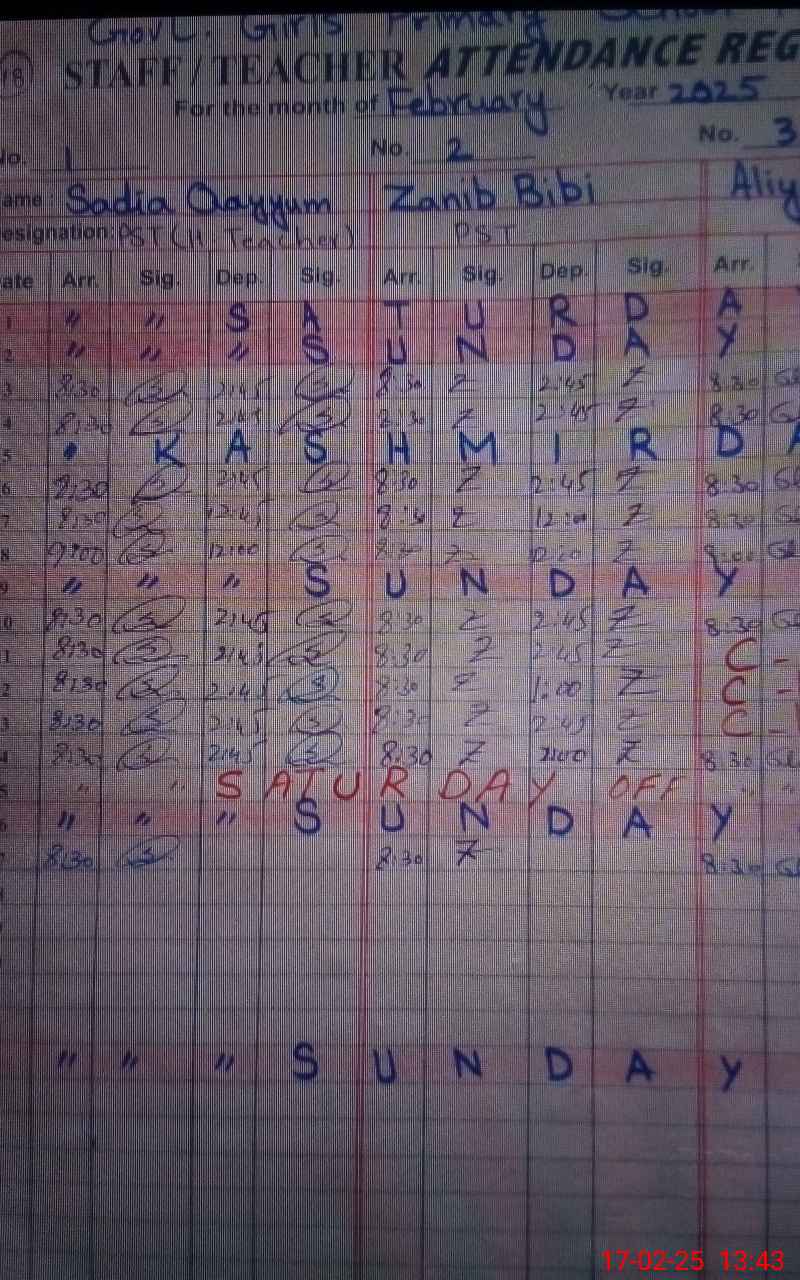 Govt. Girls Primary School
18 STAFF/TEACHER ATTENDANCE REG
For the month of February Year 2025
No. 1 No. 2 No. 3
ame: Sadia Qayyum Zanib Bibi Aliy
esignation: PST (H. Teacher) PST
ate Arr. Sig. Dep. Sig. Arr. Sig. Dep. Sig. Arr.
1 " " S A T U R D A
2 " " " S U N D A Y
3 8:30 2:45 8:30 Z 2:45 Z 8:30
4 8:30 2:45 Z 2:45 Z 8:30
5 K A S H M I R D A
6 8:30 2:45 8:30 Z 2:45 Z 8:30
7 8:30 12:45 8:30 Z 12:00 Z 8:30
8 9:00 12:00 Z Z
9 " " " S U N D A Y
0 8:30 2:45 8:30 Z 2:45 Z 8:30
1 8:30 2:45 8:30 Z 2:45 Z C -
2 8:30 2:45 8:30 Z 1:00 Z C -
3 8:30 2:45 8:30 Z 2:45 Z C -
4 8:30 2:45 8:30 Z 2:00 Z 8:30
5 " " S A T U R D A Y OFF " "
6 " " " S U N D A Y
7 8:30 8:30 Z 8:30
" " " S U N D A Y
17-02-25 13:43